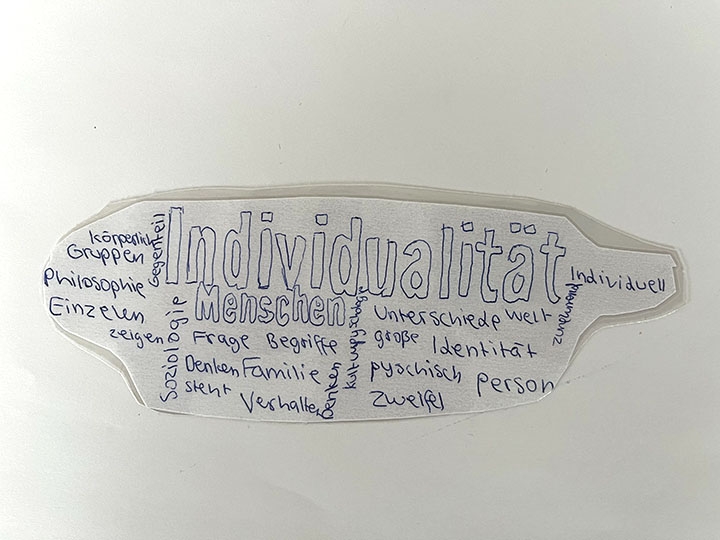 Individualität
körperlich
Gruppen
Gegenteil
Philosophie
Individuell
Menschen
Einzelen
Unterschiede Welt
zeigen
Soziologie
Frage Begriffe
große
Identität
Denken Familie
pyschisch
Person
steht
Verhalten
Denken
Zweifel